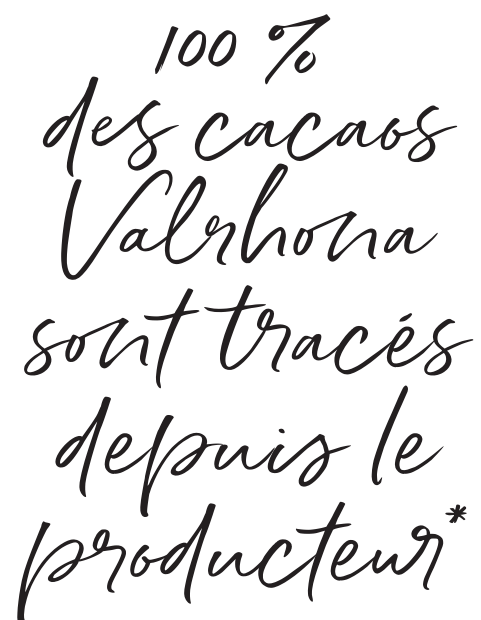 100 %
des cacaos
Valrhona
sont tracés
depuis le
producteur*